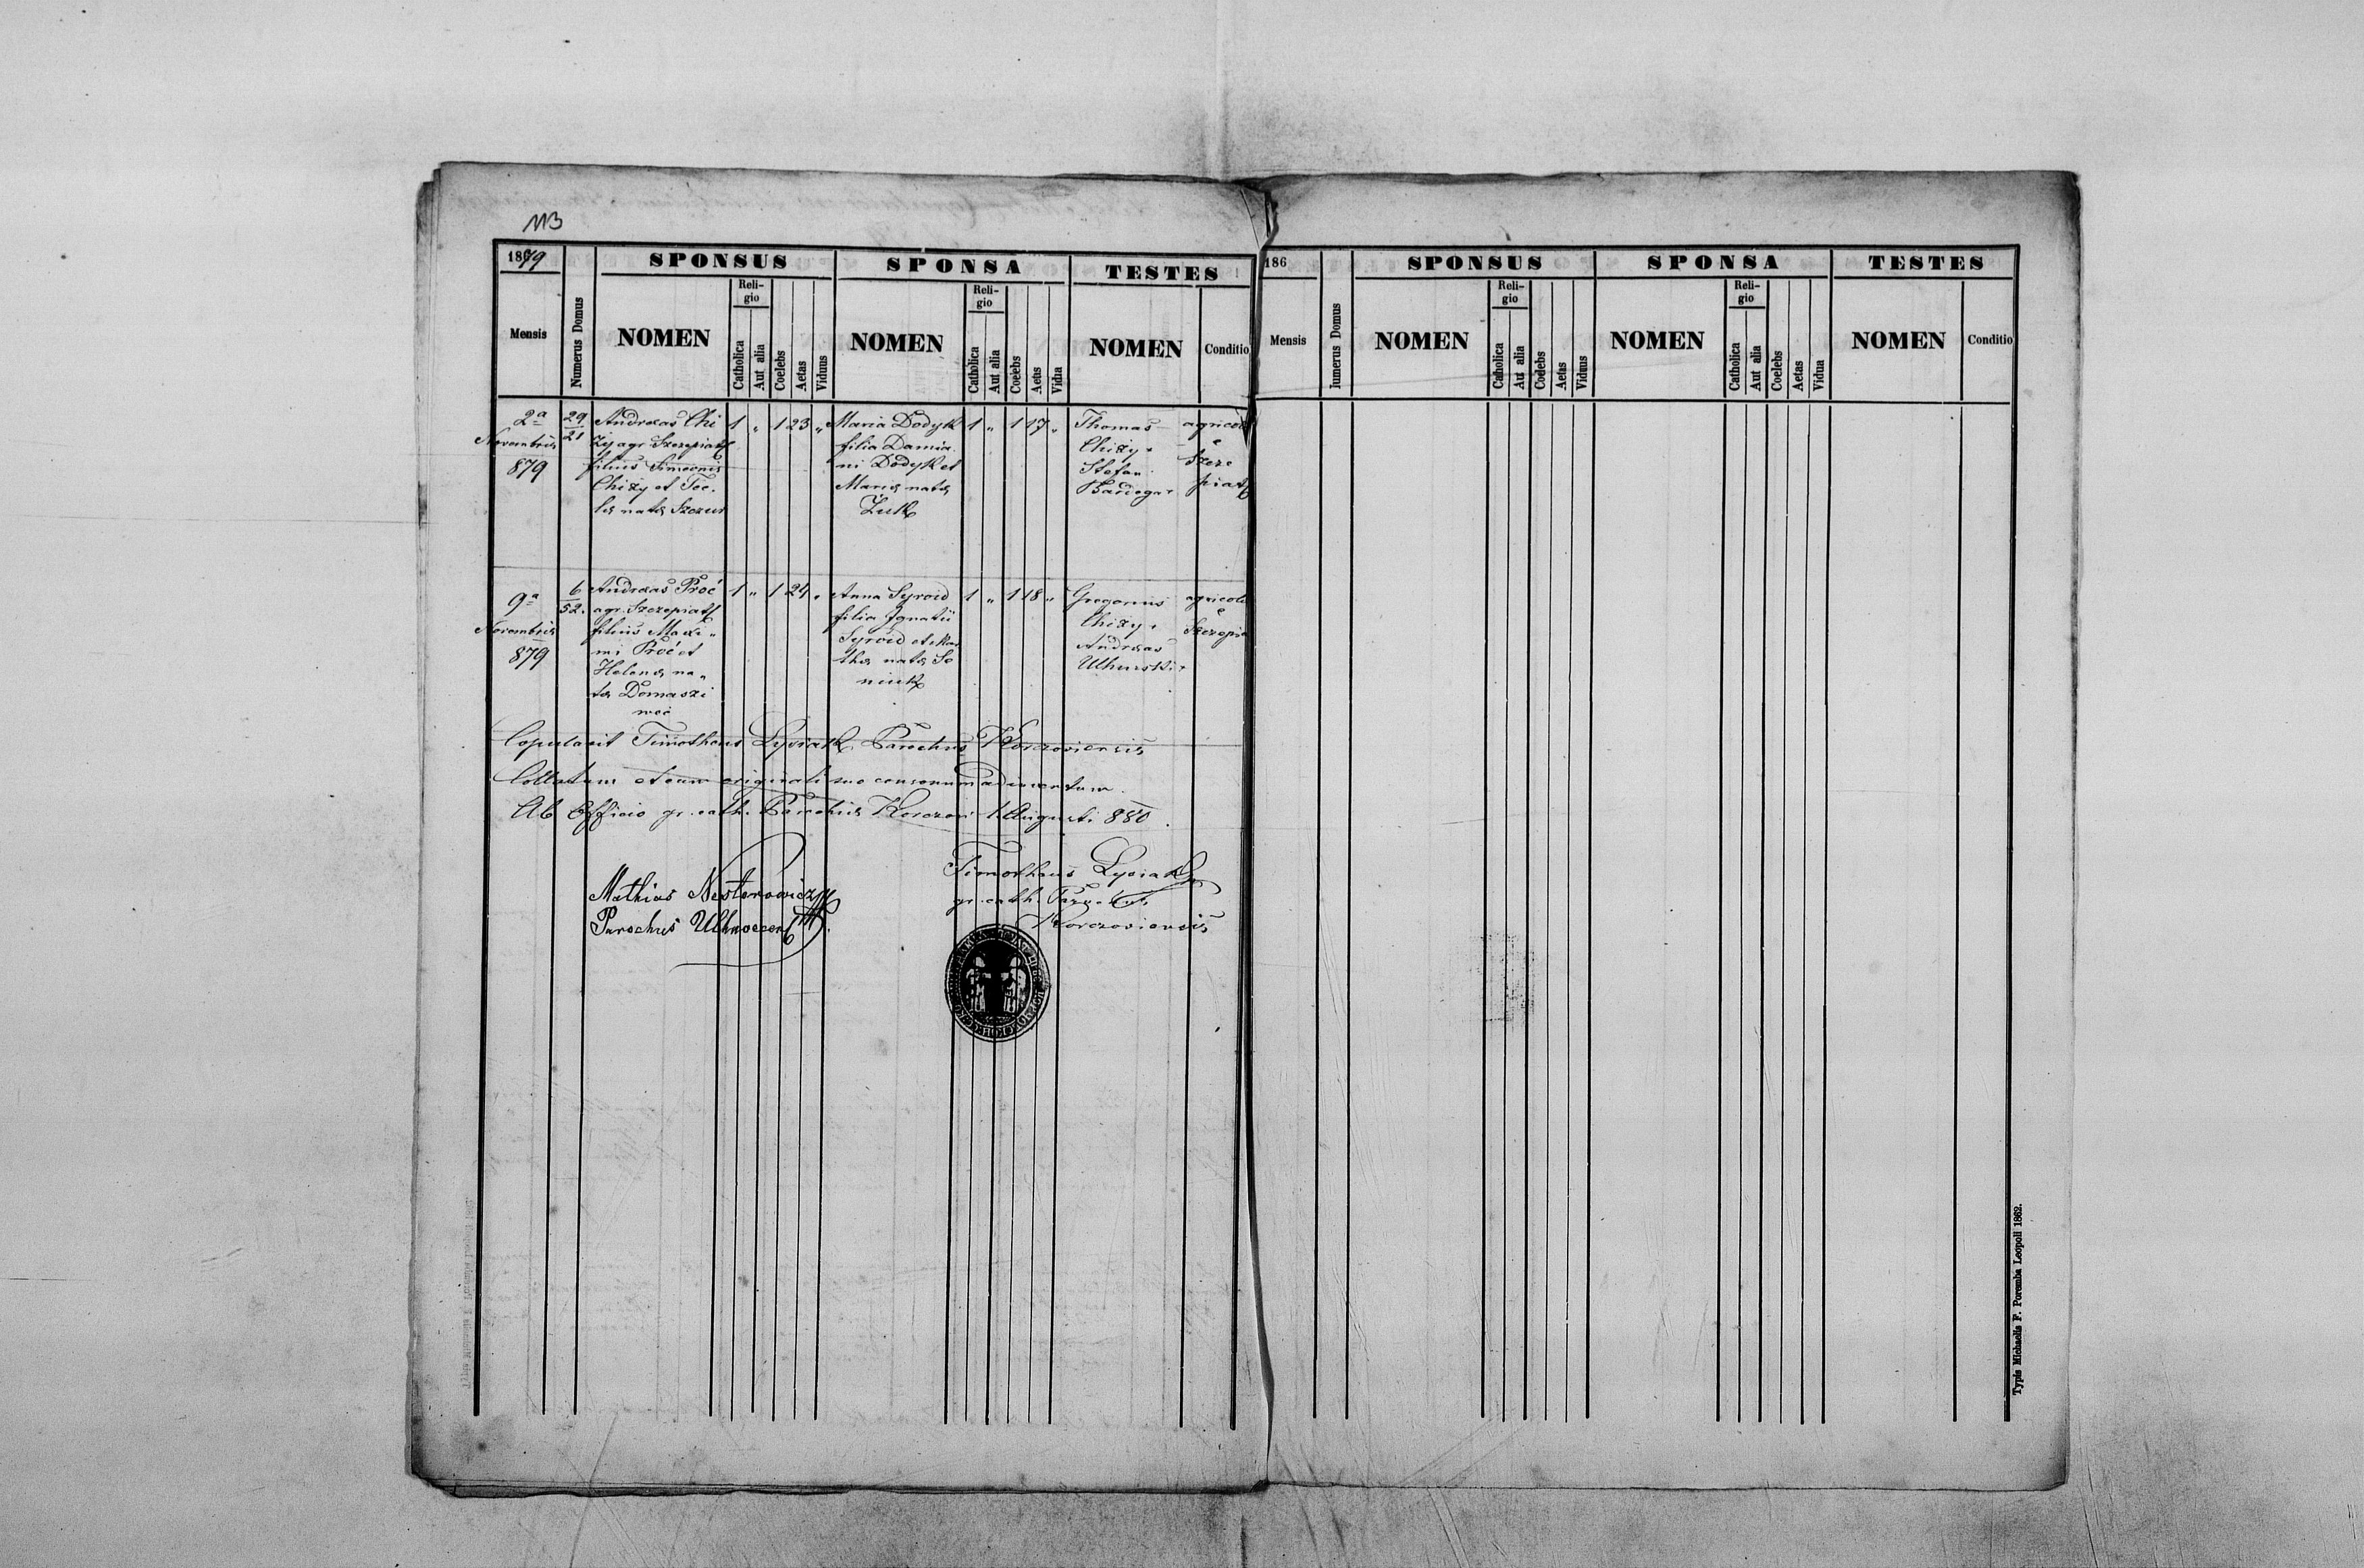 113
1879
SPONSUS
SPONSA
TESTES
Mensis
Numerus Domus
NOMEN
Reli-
gio
Catholica
Aut alia
Coelebs
Aetas
Viduus
NOMEN
Reli-
gio
Catholica
Aut alia
Coelebs
Aetas
Vidua
NOMEN
Conditio
2a
Novembris
879
29
21
Andreas Chi
zy agr. Szczepiat
filius Simeonis
Chizy et Tec.
la nata Szczur
1 " 1 23 "
Maria Dodyk
filia Damia
ni Dodyk et
Maria nata
Żuk
1 " 1 17 "
Thomas
Chizy
Stefan
agricola
e
Szcze
piat
9a
Novembris
879
6
52.
Andreas Proć
agr. Szczepiat
filius Maxi "
mi Proć et
Helena na "
ta Domaszi
1 " 1 24 "
Anna Syroid
filia Ignatii
Syroid et Mar
tha nata Se
niuk
1 " 1 18 "
Gregorius
Chizy
Andreas
Ulhurski
agricola
e
Szczepia
Copulavit Timotheus Lysiak Parochus Korczoviensis
Collatum et cum originali suo consonum adinventum.
Ab Officio gr. cath. Parochiae Korczow 1 Augusti 880.
Mathias Nesterowicz
Parochus
Timotheus Lysiak
gr. cath. Parochus
Korczoviensis
186
SPONSUS
SPONSA
TESTES
Mensis
umerus Domus
NOMEN
Reli-
gio
Catholica
Aut alia
Coelebs
Aetas
Viduus
NOMEN
Reli-
gio
Catholica
Aut alia
Coelebs
Aetas
Vidua
NOMEN
Conditio
Typis Michaelis F. Poremba Leopoli 1862.